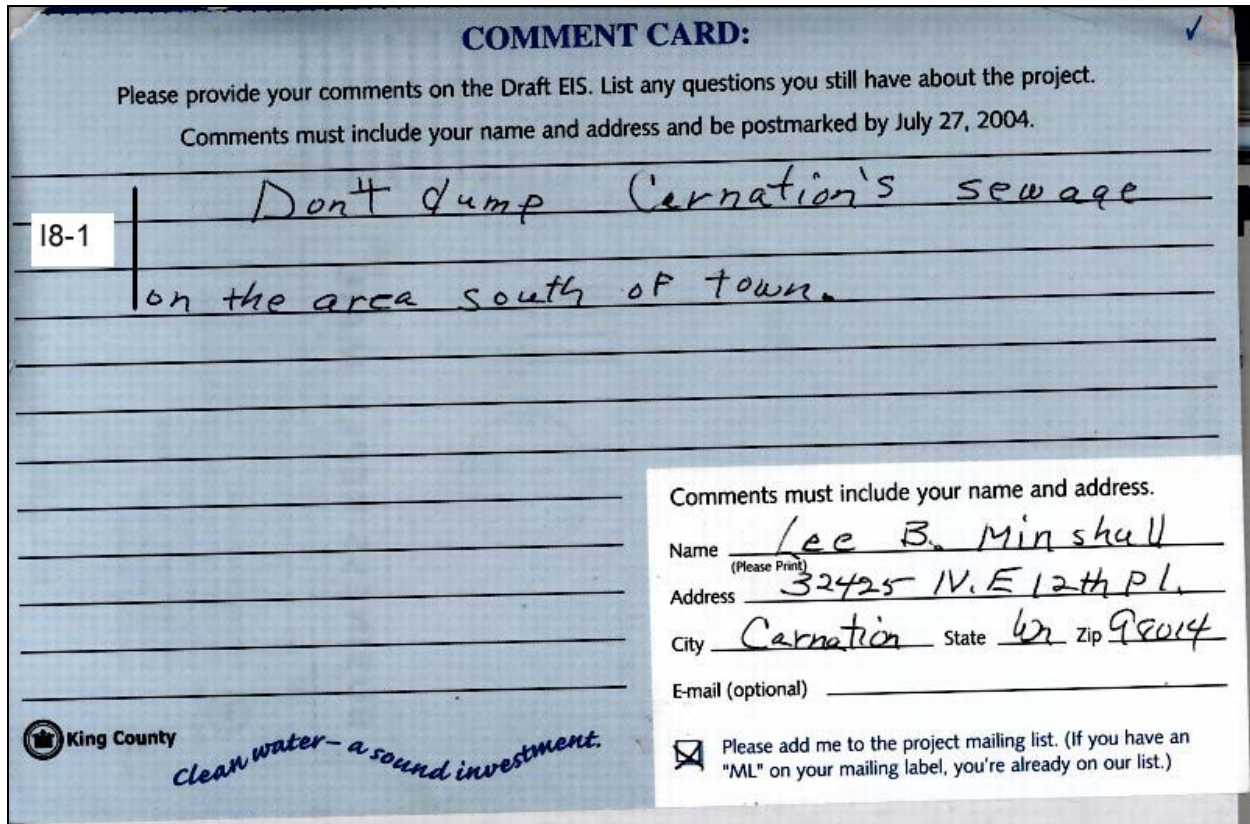 COMMENT CARD:
Please provide your comments on the Draft EIS. List any questions you still have about the project.
Comments must include your name and address and be postmarked by July 27, 2004.
Don't dump Carnation's sewage
I8-1
on the area south of town.
Comments must include your name and address.
Name Lee B. Minshall
(Please Print)
Address 32425 N.E 12th Pl.
City Carnation State Wa Zip 98014
E-mail (optional)
King County
Clean water – a sound investment.
Please add me to the project mailing list. (If you have an
"ML" on your mailing label, you're already on our list.)